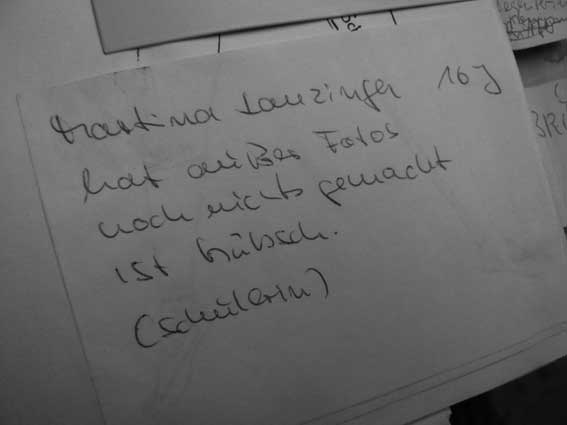 Martina Lanzinger 16J
hat außer Fotos
noch nichts gemacht
ist hübsch.
(Schülerin)